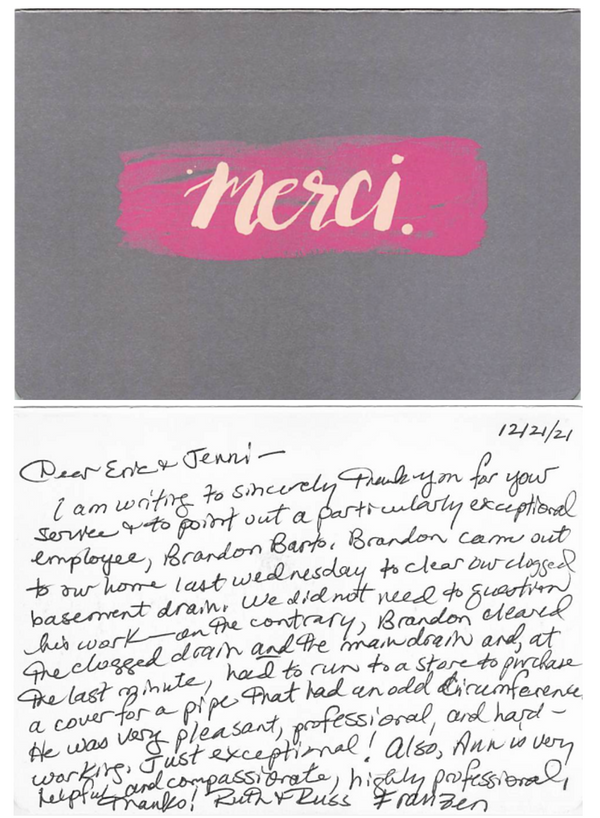 merci.
12/21/21
Dear Eric & Jenni—
I am writing to sincerely Thank you for your
service & to point out a particularly exceptional
employee, Brandon Barto. Brandon came out
to our home last wednesday to clear our clogged
basement drain. We did not need to question
his work—on the contrary, Brandon cleared
the clogged drain and the main drain and, at
the last minute, had to run to a store to purchase
a cover for a pipe that had an odd circumference.
He was very pleasant, professional, and hard-
working. Just exceptional! Also, Ann is very
helpful and compassionate, highly professional,
Thanks! Ruth & Russ Franzen